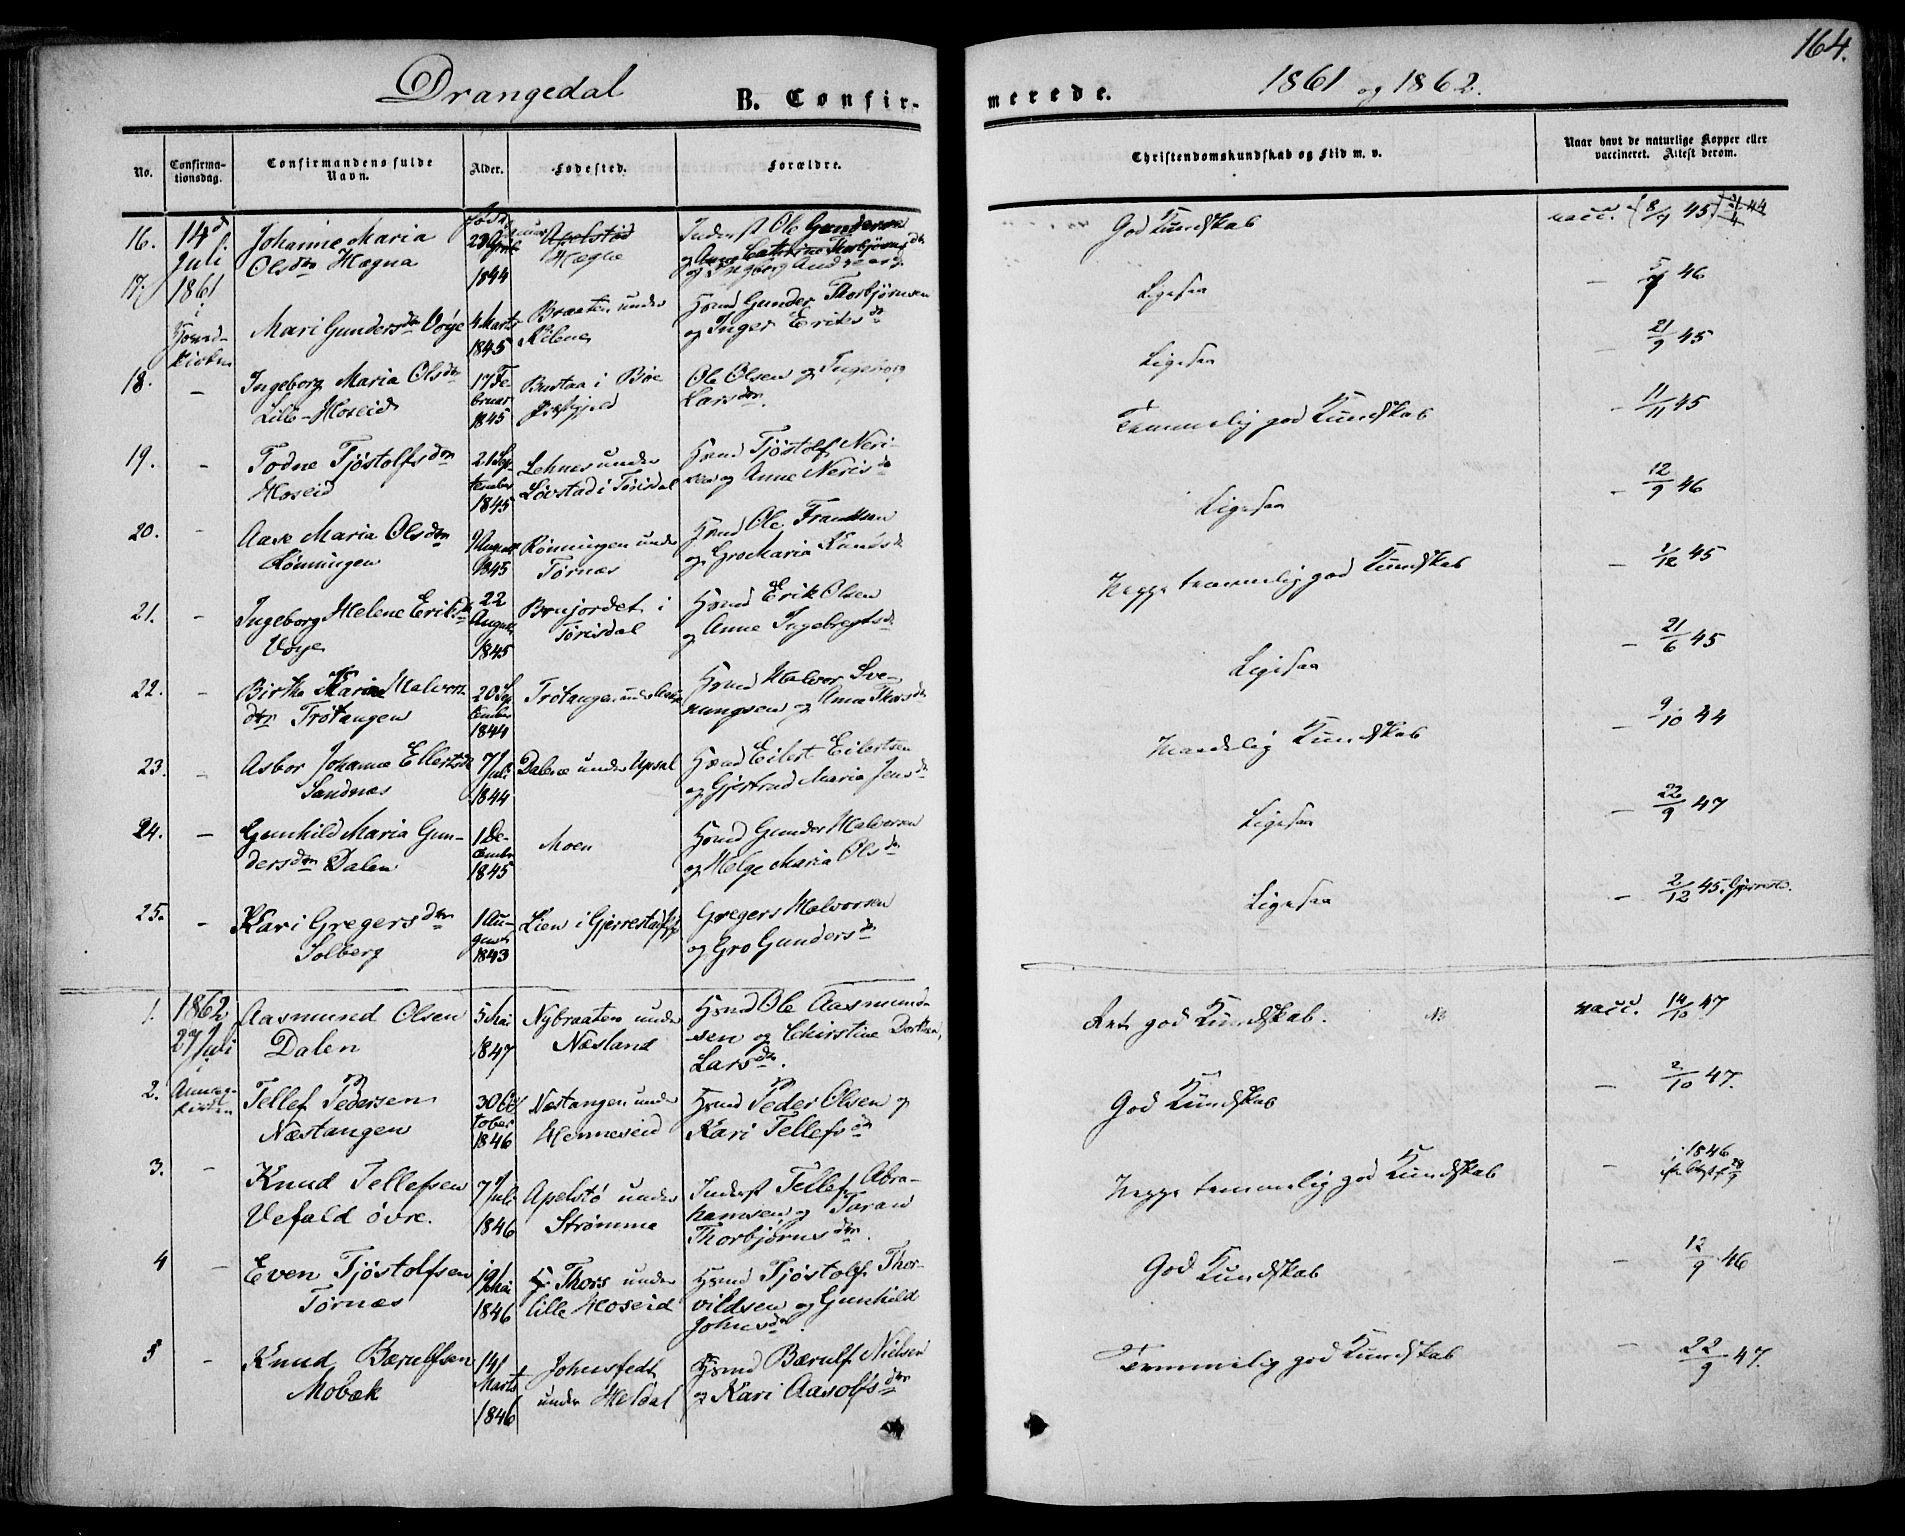 164.
Drangedal B. Confirmerede. 1861 og 1862.
No. Confirmationsdag. Confirmandens fulde Navn. Alder. Fødested. Forældre. Christendomskundskab og Flid m. v. Naar havt de naturlige Kopper eller vaccineret. Attest derom.
16. 14d Juli 1861 Johanne Maria Olsdtr Hægna 1844 Apelstød Inderst Ole Gundersen og Ingeborg God Kundskab vacc. 8/9 45
17. Mari Gundersdtr Voje 4 Marts 1845 Braaten under Kilene Hsmd Gunder Thorbjørnsen og Inger Eriksdtr Ligesaa
- 46
Ligesaa - 21/9 45
18. - Ingeborg Maria Olsdtr Lille-Hoseid 17 Februar 1845 Bustaa i Bøe Ole Olsen og Ingeborg Larsdtr. Temmelig god Kundskab - 11/11 45
19. - Todne Tjøstolfsdtr Hoseid 21 September 1845 Lehnes under Løvstad i Tørisdal Hsmd Tjøstolf Nerisen og Anne Nerisdtr Ligesaa - 12/9 46
20. - Aase Maria Olsdtr Rønningen 1845 Rønningen under Tørnæs Hsmd Ole Frantssen og Gro Maria Knudsdtr Neppe temmelig god Kundskab - 1/12 45
21. - Ingeborg Helene Eriksdtr Voje 22 August 1845 Brujordet i Tørisdal Hsmd Erik Olsen og Anne Ingebregtsdtr Ligesaa - 21/6 45
22. - Birthe Karine Halvorsdtr Trøtangen 20 September 1844 Trøtangen under Hsmd Halvor Svenungsen og Anne Thorsdtr Maadelig Kundskab - 9/10 44
23. - Asbor Johanne Ellertsdtr Sandnæs 7 Juli 1844 Dalene under Upsal Hsmd Eilert Eilertsen og Gjertrud Maria Jensdtr Ligesaa - 22/9 47
24. - Gunhild Maria Gundersdtr Dalen 1 December 1845 Moen Hsmd Gunder Halvorsen og Helge Maria Olsdtr Ligesaa - 2/12 45. Gjerrestd.
25. - Kari Gregersdtr Solberg 1 August 1843 Lien i Gjerrestad Gregers Halvorsen og Gro Gundersdtr
1. 1862 27 Juli Aasmund Olsen Dalen 5 Mai 1847 Nybraaten under Næsland Hsmd Ole Aasmundsen og Christine Dorthea Larsdtr. god Kundskab. NB vacc. 14/10 47
2. Tellef Pedersen Næstangen 30 October 1846 Næstangen under Henneseid Hsmd Peder Olsen og Kari Tellefsdtr God Kundskab - 2/10 47.
3. - Knud Tellefsen Vefald øvre. 7 Juli 1846 Apelstø under Strømme Inderst Tellef Abrahamsen og Taran Thorbjørnsdtr. Neppe temmelig god Kundskab - 1846
4 - Even Tjøstolfsen Tørnæs 19 Mai 1846 Thors under lille Hoseid Hsmd Tjøstolf Thorvildsen og Gunhild Johnsdtr. God Kundskab - 12/9 46
5 - Knud Bærulfsen Mobæk 14 Marts 1846 Johnsfedt under Heldal Hsmd Bærulf Nielsen og Kari Aasolfsdtr Temmelig god Kundskab - 22/9 47.